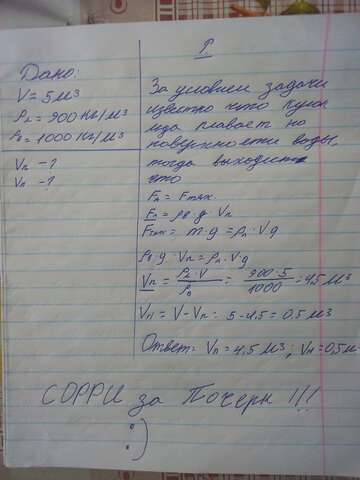 1
Дано:
V = 5 м³
ρл = 900 кг/м³
ρв = 1000 кг/м³
Vп - ?
Vн - ?
За условием задачи
известно что кусок
льда плавает на
поверхности воды,
тогда выходит
что
Fа = Fтяж.
Fа = ρв · g · Vп
Fтяж = m · g = ρл · V g
ρв g · Vп = ρл · V · g
Vп = ρл · V / ρв = 900 · 5 / 1000 = 4,5 м³
Vн = V - Vп = 5 - 4,5 = 0,5 м³
Ответ: Vп = 4,5 м³; Vн = 0,5 м
СОРРИ за Почерк !!!
:)